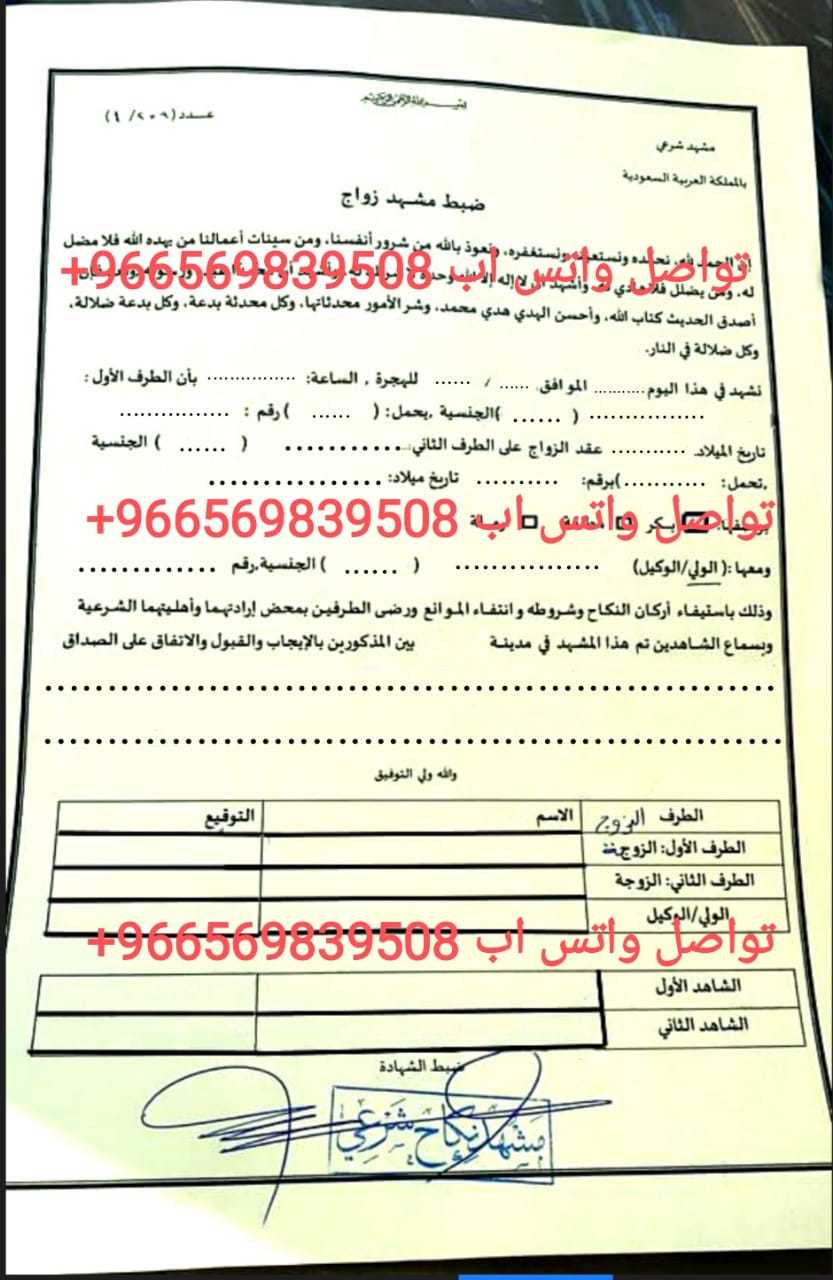 عدد (٢٠٩/ ٤)
مشهد شرعي
بالمملكة العربية السعودية
ضبط مشهد زواج
إن الحمد لله، نحمده ونستعينه ونستغفره، ونعوذ بالله من شرور أنفسنا، ومن سيئات أعمالنا من يهده الله فلا مضل
تواصل واتس اب 966569839508+
له، ومن يضلل فلا هادي له وأشهد أن لا إله إلا الله وحده
أصدق الحديث كتاب الله، وأحسن الهدي هدي محمد، وشر الأمور محدثاتها، وكل محدثة بدعة، وكل بدعة ضلالة،
وكل ضلالة في النار.
نشهد في هذا اليوم .......... الموافق ...... / ...... للهجرة , الساعة: ............... بأن الطرف الأول :
................. ( ...... )الجنسية ,يحمل: ( ...... )رقم : ................
تاريخ الميلاد. ........... عقد الزواج على الطرف الثاني: ............ ( ...... ) الجنسية
,تحمل: ...........)برقم: .......... تاريخ ميلاد: .................
تواصل واتس اب 966569839508+
بكر
ومعها :( الولي/الوكيل) ................ ( ...... ) الجنسية.رقم ..............
وذلك باستيفاء أركان النكاح وشروطه وانتفاء الموانع ورضى الطرفين بمحض إرادتهما وأهليتهما الشرعية
وبسماع الشاهدين تم هذا المشهد في مدينة بين المذكورين بالإيجاب والقبول والاتفاق على الصداق
والله ولي التوفيق
الطرف الزوج الاسم التوقيع
الطرف الأول: الزوج
الطرف الثاني: الزوجة
الولي/الوكيل
تواصل واتس اب 966569839508+
الشاهد الأول
الشاهد الثاني
ضبط الشهادة
مشهد نكاح شرعي